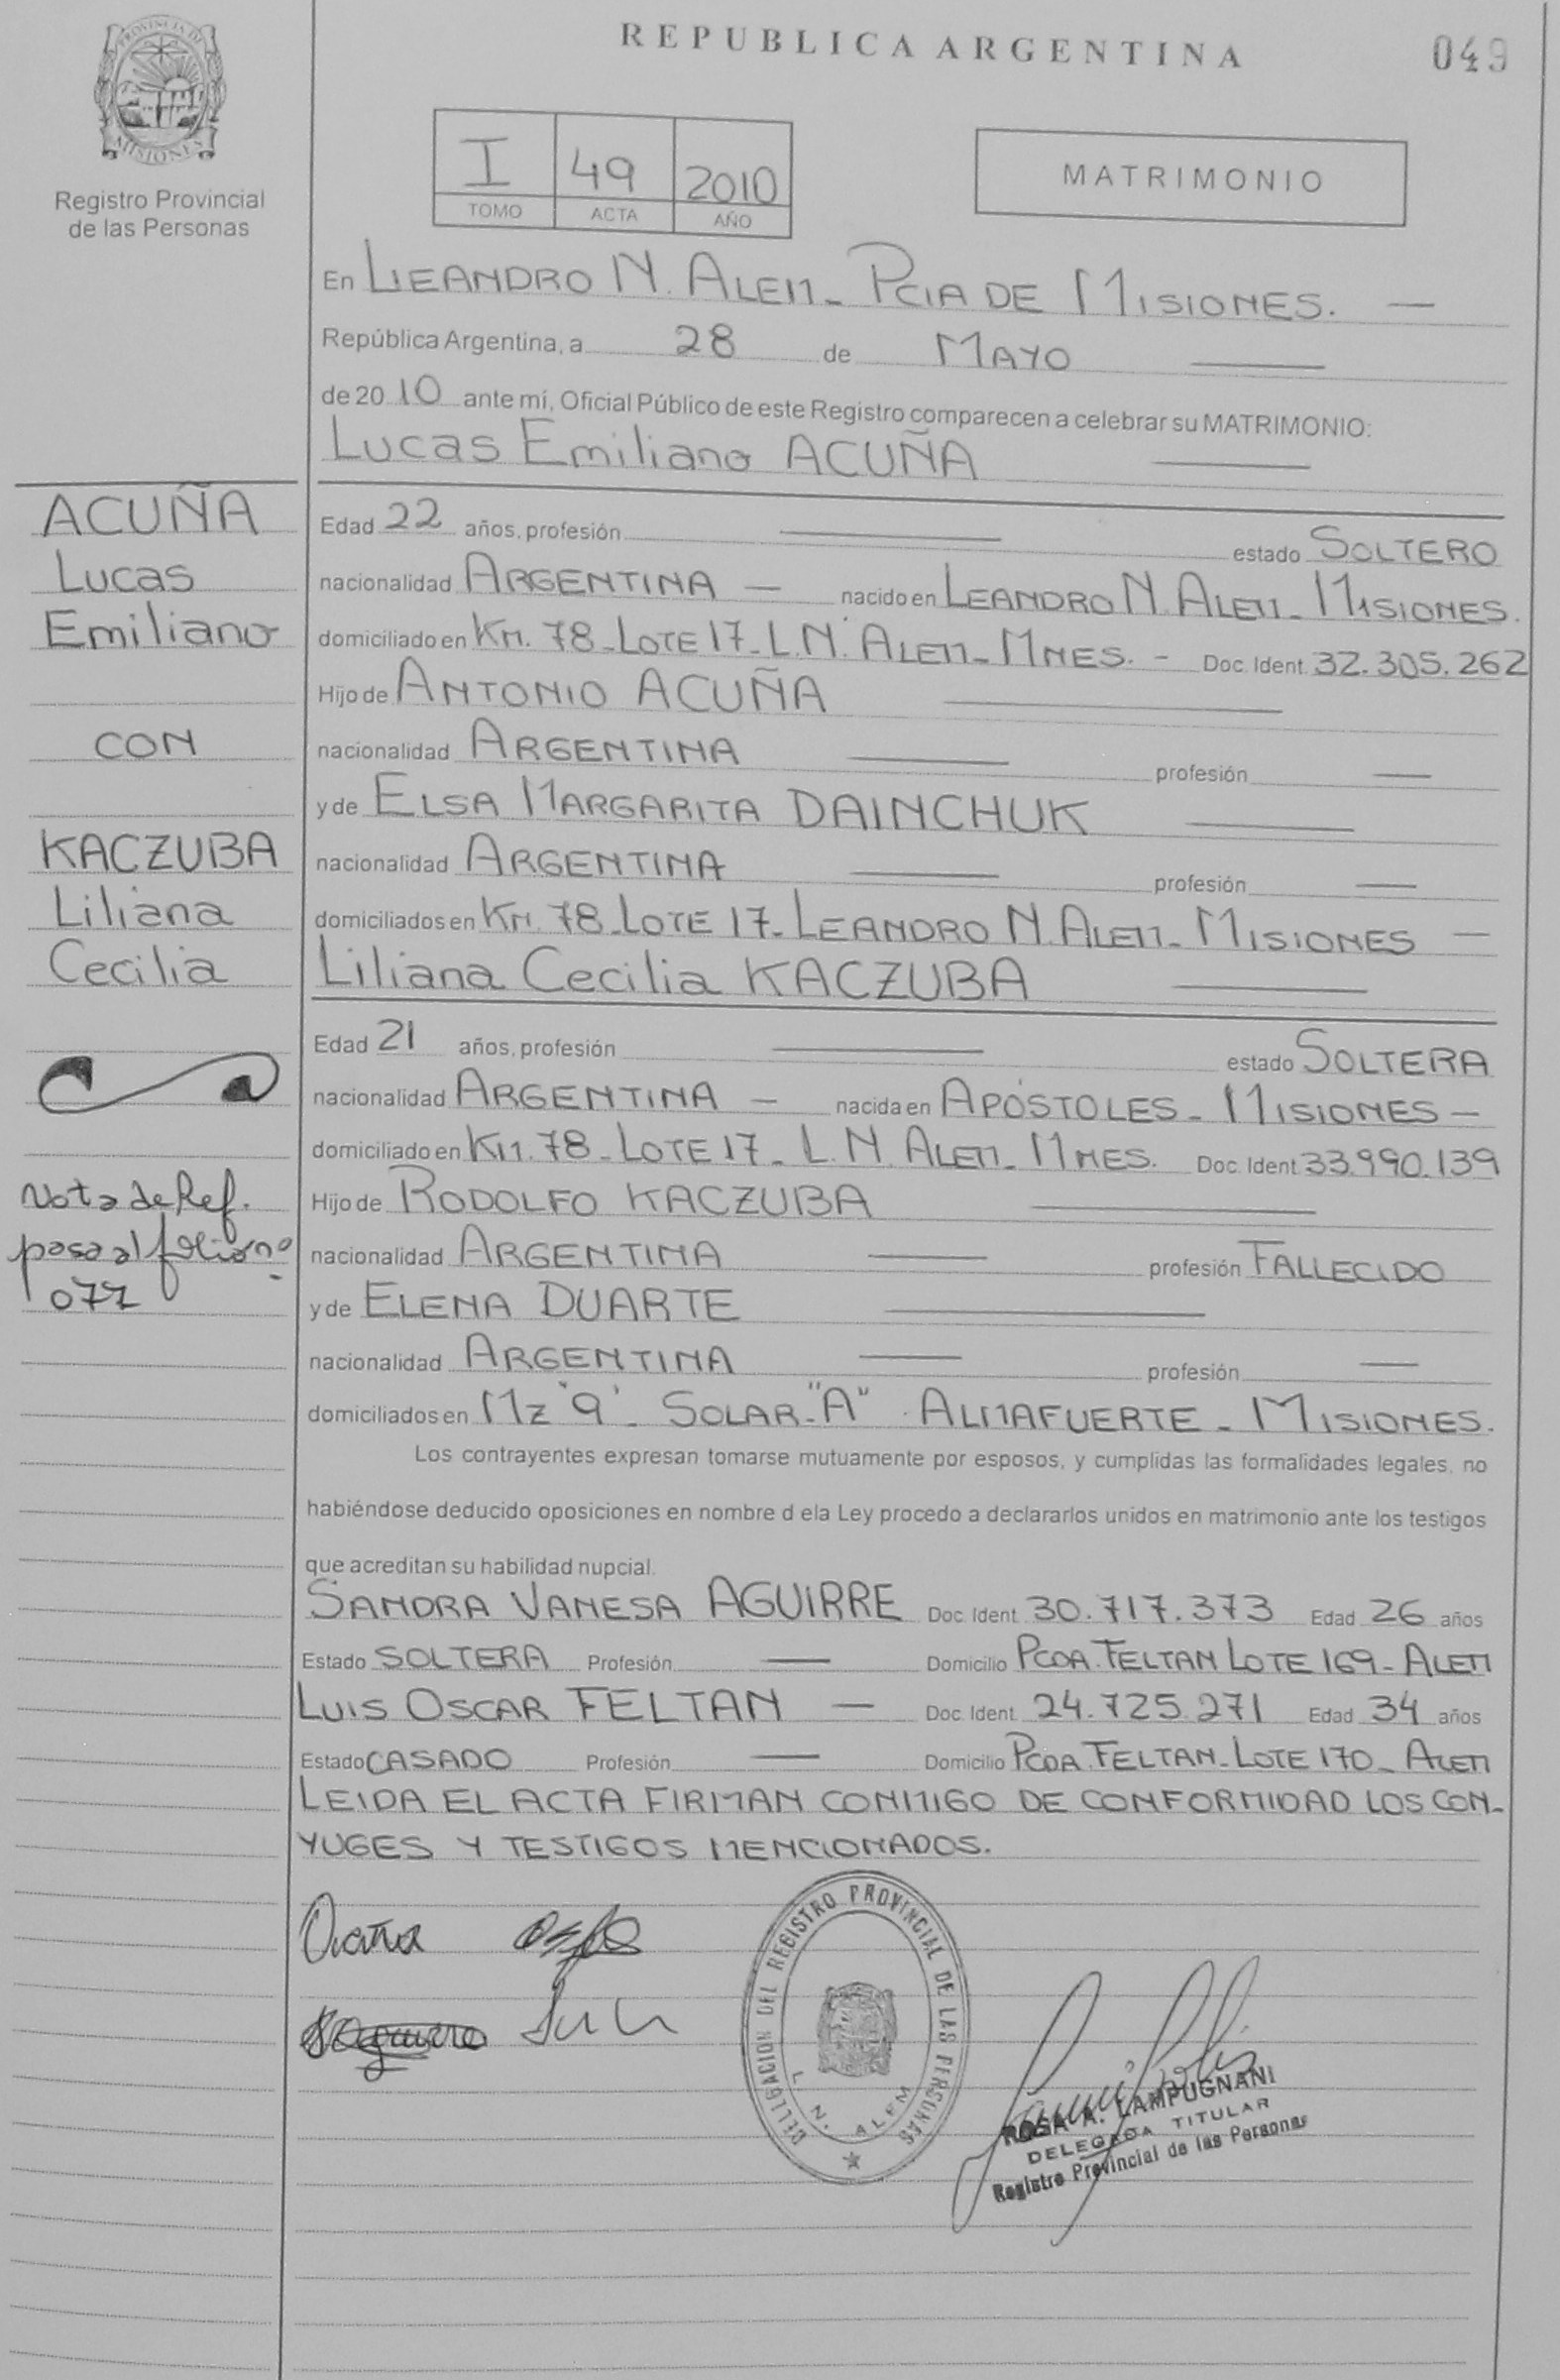 REPUBLICA ARGENTINA
049
PROVINCIA DE
MISIONES
Registro Provincial
de las Personas
I 49 2010
TOMO ACTA AÑO
MATRIMONIO
En LEANDRO N. ALEM - PCIA DE MISIONES. —
República Argentina, a 28 de MAYO —
de 2010 ante mí, Oficial Público de este Registro comparecen a celebrar su MATRIMONIO:
Lucas Emiliano ACUÑA —
ACUÑA
Lucas
Emiliano
CON
KACZUBA
Liliana
Cecilia
Nota de Ref.
pasa al folio nº
077
Edad 22 años, profesión — estado SOLTERO
nacionalidad ARGENTINA — nacido en LEANDRO N. ALEM - MISIONES.
domiciliado en KM. 78 - LOTE 17 - L.N. ALEM - MNES. - Doc. Ident. 32.305.262
Hijo de ANTONIO ACUÑA —
nacionalidad ARGENTINA — profesión —
y de ELSA MARGARITA DAINCHUK —
nacionalidad ARGENTINA — profesión —
domiciliados en KM. 78 - LOTE 17 - LEANDRO N. ALEM - MISIONES —
Liliana Cecilia KACZUBA —
Edad 21 años, profesión — estado SOLTERA
nacionalidad ARGENTINA — nacida en APÓSTOLES - MISIONES —
domiciliado en KM. 78 - LOTE 17 - L. N. ALEM - MNES. Doc. Ident 33.990.139
Hijo de RODOLFO KACZUBA —
nacionalidad ARGENTINA — profesión FALLECIDO
y de ELENA DUARTE —
nacionalidad ARGENTINA — profesión —
domiciliados en MZ "9" - SOLAR - "A" - ALMAFUERTE - MISIONES.
Los contrayentes expresan tomarse mutuamente por esposos, y cumplidas las formalidades legales, no
habiéndose deducido oposiciones en nombre d ela Ley procedo a declararlos unidos en matrimonio ante los testigos
que acreditan su habilidad nupcial.
SANDRA VANESA AGUIRRE Doc. Ident. 30.717.373 Edad 26 años
Estado SOLTERA Profesión — Domicilio PCDA. FELTAN LOTE 169 - ALEM
LUIS OSCAR FELTAN — Doc. Ident. 24.725.271 Edad 34 años
Estado CASADO Profesión — Domicilio PCDA. FELTAN - LOTE 170 - ALEM
LEIDA EL ACTA FIRMAN CONMIGO DE CONFORMIDAD LOS CON-
YUGES Y TESTIGOS MENCIONADOS.
Acuña
Aguirre
DELEGACION DEL REGISTRO PROVINCIAL DE LAS PERSONAS
L. N. ALEM
ROSA A. LAMPUGNANI
DELEGADA TITULAR
Registro Provincial de las Personas